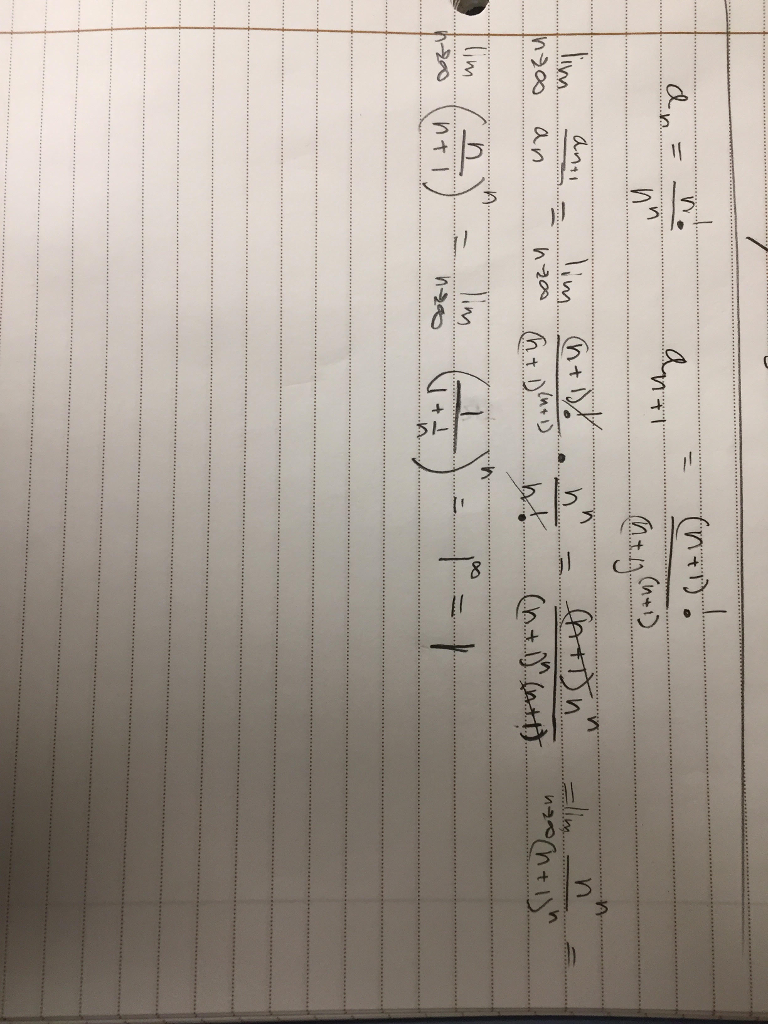 aₙ = n!/nⁿ   aₙ₊₁ = (n+1)!/(n+1)⁽ⁿ⁺¹⁾
lim n→∞ aₙ₊₁/aₙ = lim n→∞ (n+1)!/(n+1)⁽ⁿ⁺¹⁾ · nⁿ/n! = (n+1)nⁿ/(n+1)ⁿ(n+1) = lim n→∞ nⁿ/(n+1)ⁿ =
lim n→∞ (n/(n+1))ⁿ = lim n→∞ (1/(1+1/n))ⁿ = 1^∞ = 1